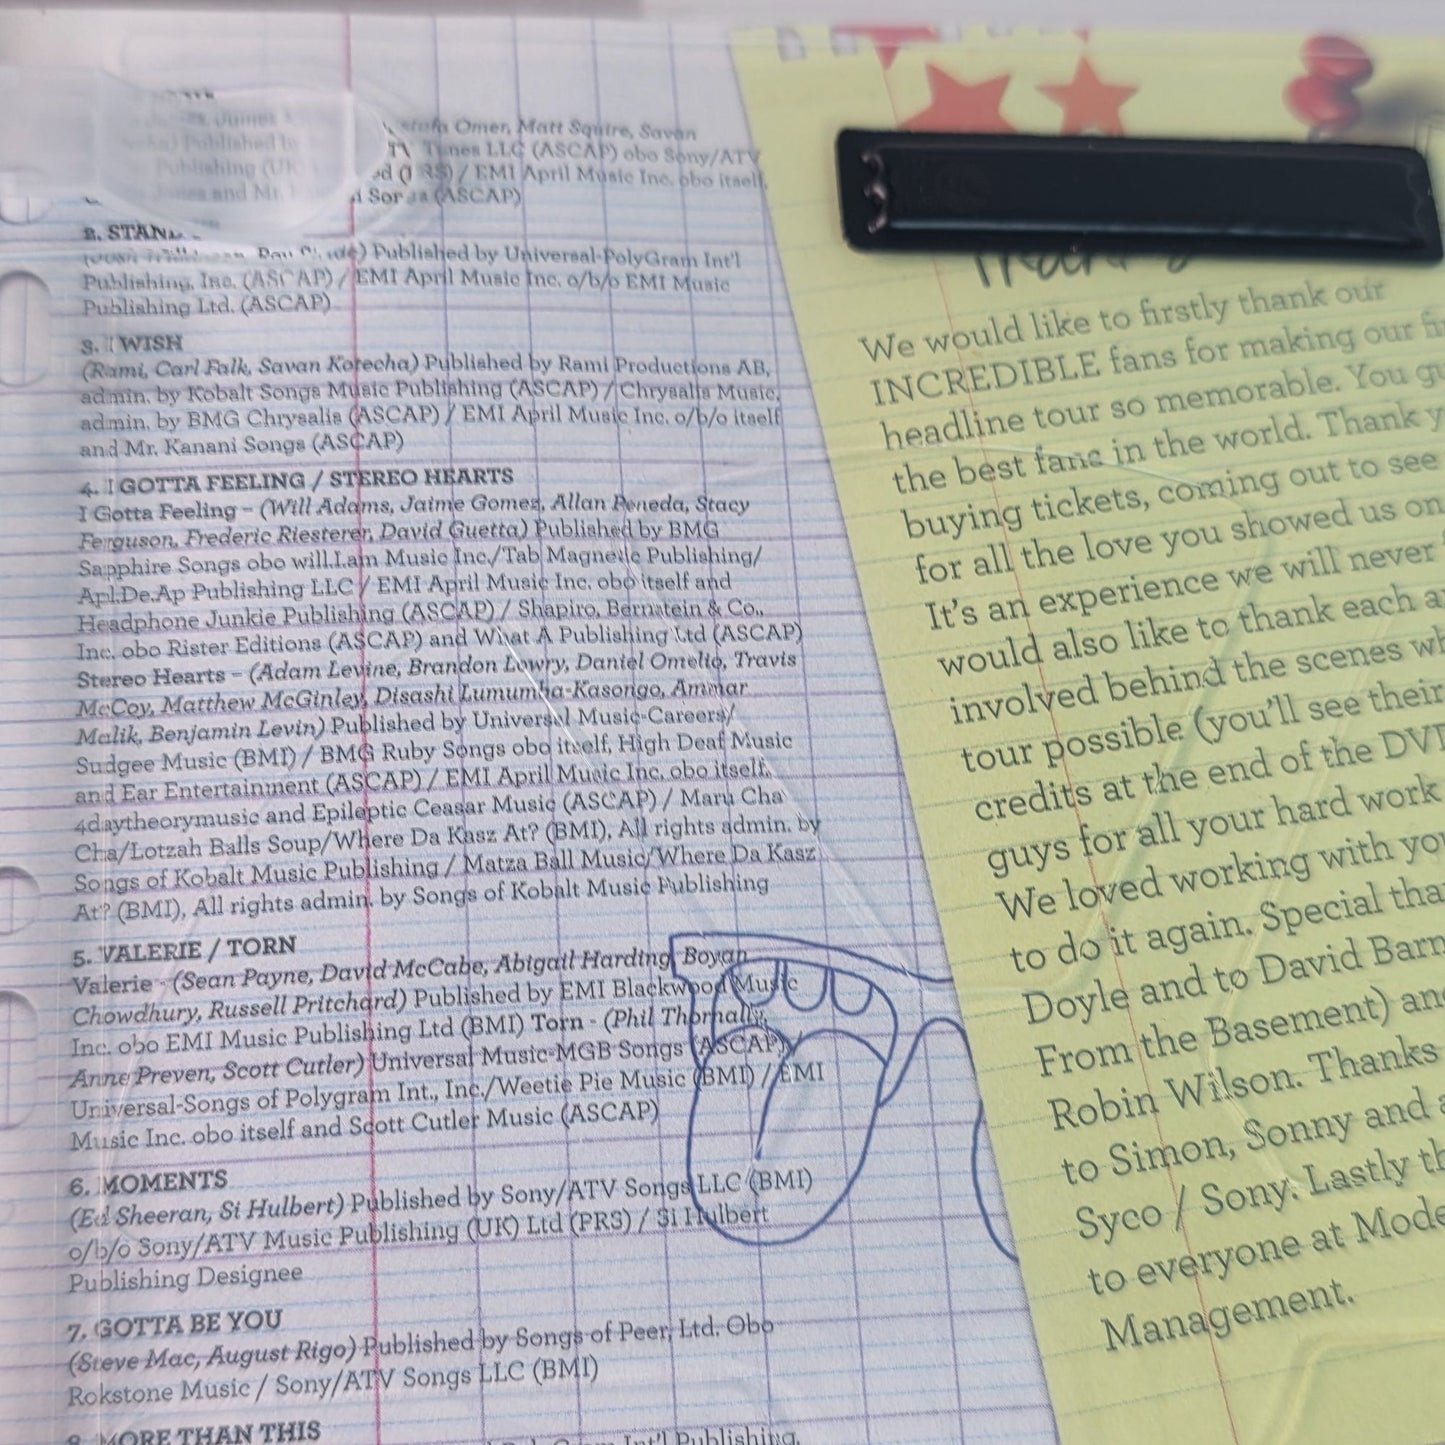 Omer, Matt Squire, Savan
Tunes LLC (ASCAP) obo Sony/ATV
Publishing / EMI April Music Inc. obo itself,
and Mr. (ASCAP)
2.
Published by Universal-PolyGram Int'l
Publishing, Inc. (ASCAP) / EMI April Music Inc. o/b/o EMI Music
Publishing Ltd. (ASCAP)
3. I WISH
(Rami, Carl Falk, Savan Kotecha) Published by Rami Productions AB,
admin. by Kobalt Songs Music Publishing (ASCAP) / Chrysalis Music,
admin. by BMG Chrysalis (ASCAP) / EMI April Music Inc. o/b/o itself
and Mr. Kanani Songs (ASCAP)
4. I GOTTA FEELING / STEREO HEARTS
I Gotta Feeling – (Will Adams, Jaime Gomez, Allan Peneda, Stacy
Ferguson, Frederic Riesterer, David Guetta) Published by BMG
Sapphire Songs obo will.I.am Music Inc./Tab Magnetic Publishing/
Apl.De.Ap Publishing LLC / EMI April Music Inc. obo itself and
Headphone Junkie Publishing (ASCAP) / Shapiro, Bernstein & Co.,
Inc. obo Rister Editions (ASCAP) and What A Publishing Ltd (ASCAP)
Stereo Hearts – (Adam Levine, Brandon Lowry, Daniel Omelio, Travis
McCoy, Matthew McGinley, Disashi Lumumba-Kasongo, Ammar
Malik, Benjamin Levin) Published by Universal Music-Careers/
Sudgee Music (BMI) / BMG Ruby Songs obo itself, High Deaf Music
and Ear Entertainment (ASCAP) / EMI April Music Inc. obo itself,
4daytheorymusic and Epileptic Ceasar Music (ASCAP) / Maru Cha
Cha/Lotzah Balls Soup/Where Da Kasz At? (BMI), All rights admin. by
Songs of Kobalt Music Publishing / Matza Ball Music/Where Da Kasz
At? (BMI), All rights admin. by Songs of Kobalt Music Publishing
5. VALERIE / TORN
Valerie - (Sean Payne, David McCabe, Abigail Harding, Boyan
Chowdhury, Russell Pritchard) Published by EMI Blackwood Music
Inc. obo EMI Music Publishing Ltd (BMI) Torn - (Phil Thornally,
Anne Preven, Scott Cutler) Universal Music-MGB Songs (ASCAP) /
Universal-Songs of Polygram Int., Inc./Weetie Pie Music (BMI) / EMI
Music Inc. obo itself and Scott Cutler Music (ASCAP)
6. MOMENTS
(Ed Sheeran, Si Hulbert) Published by Sony/ATV Songs LLC (BMI)
o/b/o Sony/ATV Music Publishing (UK) Ltd (PRS) / Si Hulbert
Publishing Designee
7. GOTTA BE YOU
(Steve Mac, August Rigo) Published by Songs of Peer, Ltd. Obo
Rokstone Music / Sony/ATV Songs LLC (BMI)
8. MORE THAN THIS
Int'l Publishing,
We would like to firstly thank our
INCREDIBLE fans for making our
headline tour so memorable. You
the best fans in the world. Thank
buying tickets, coming out to see
for all the love you showed us on
It's an experience we will never
would also like to thank each
involved behind the scenes
tour possible (you'll see their
credits at the end of the DVD
guys for all your hard work
We loved working with
to do it again. Special
Doyle and to David
From the Basement)
Robin Wilson. Thanks
to Simon, Sonny and
Syco / Sony. Lastly
to everyone at
Management.